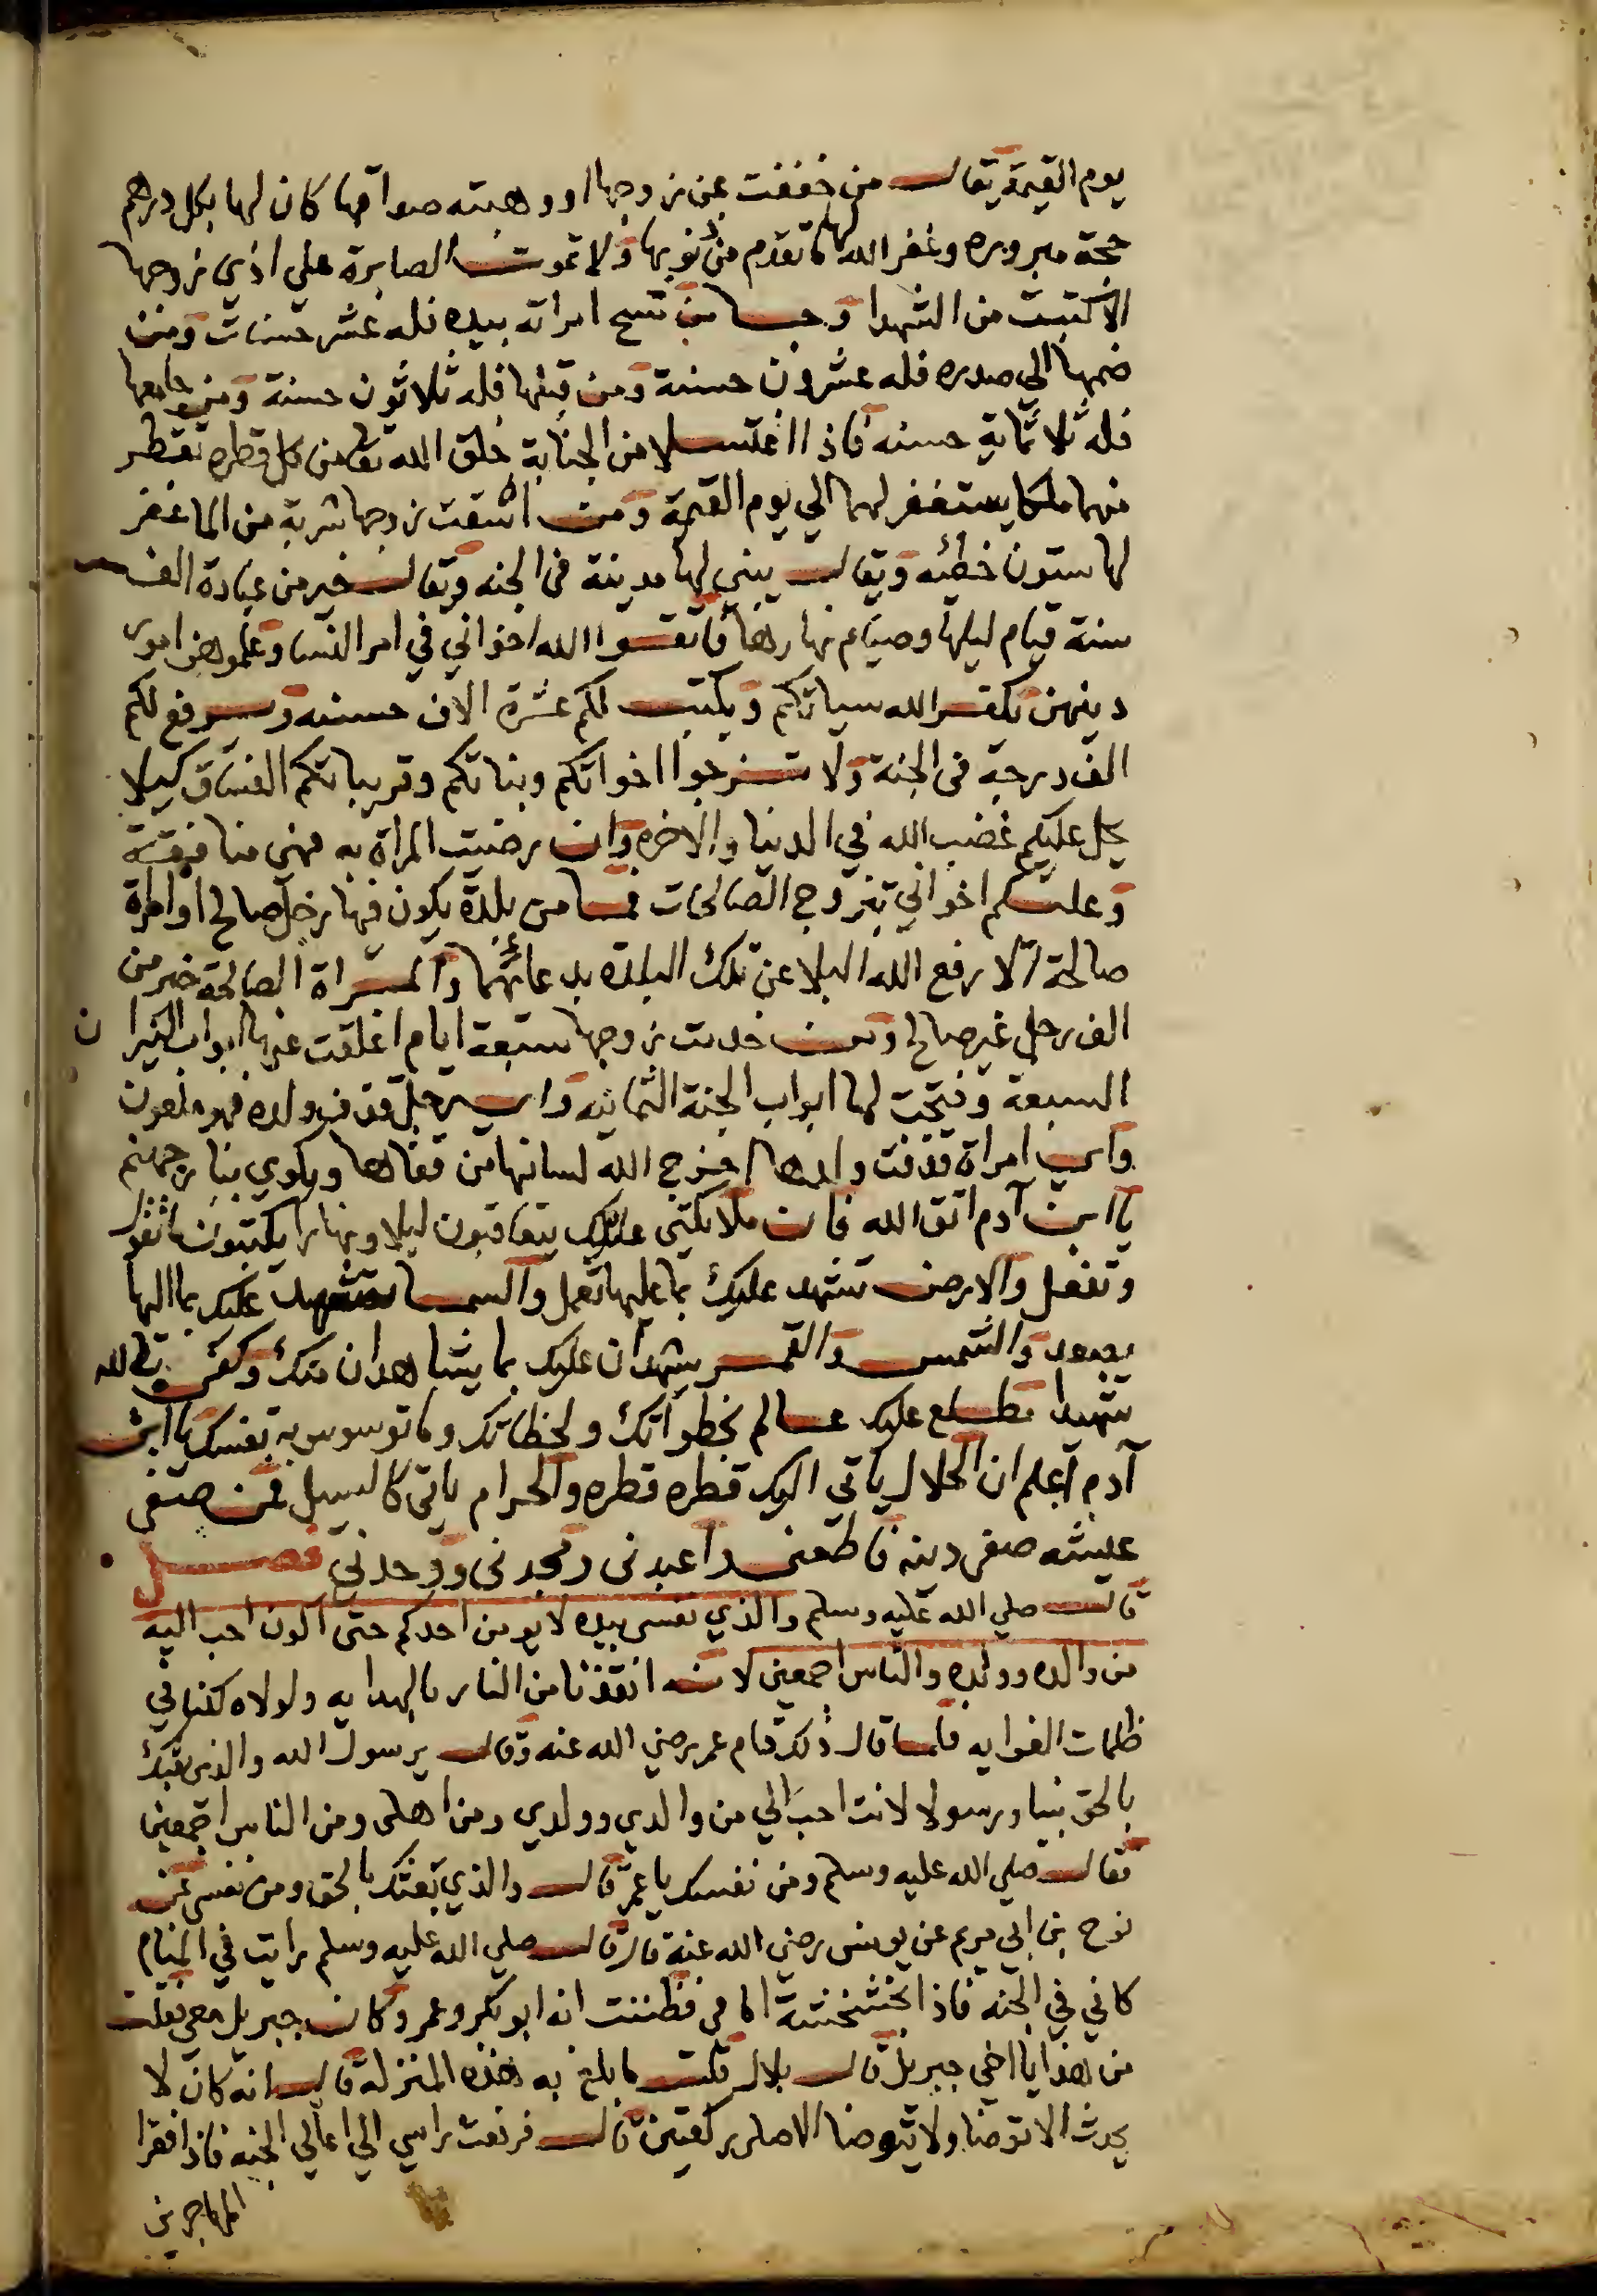 يوم القيمة يقال من خففت عن زوجها او وهبته صداقها كان لها بكل درهم
حجة مبروره وغفر الله لها ما تقدم من ذنوبها ولا تموت الصابرة علي اذي زوجها
الا كتبت من الشهدا وجا من مسح امراته بيده فله عشر حسنات ومن
ضمها الي صدره فله عشرون حسنة ومن قبلها فله ثلاثون حسنة ومن جامعها
فله ثلا ثماية حسنه فاذا اغتسلا من الجنابة خلق الله تعا من كل قطره تقطر
منهما ملكا يستغفر لهما الي يوم القيمة ومن اسقت زوجها شربة من الما غفر
لها ستون خطئه ويقال يبني لها مدينة في الجنه ويقال خير من عبادة الف
سنة قيام ليلها وصيام نهارها فاتقوا الله اخواني في امر النسا وعلموهن امور
دينهن يكفر الله سياتكم ويكتب لكم عشرة الاف حسنه ويرفع لكم
الف درجة في الجنة ولا تزوجوا اخواتكم وبناتكم وقريباتكم الفساق كيلا
يحل عليكم غضب الله في الدنيا والاخره وان رضيت المراة به فهي منافقة
وعليكم اخواني بتزوج الصالحات فما من بلدة يكون فيها رجل صالح او امراة
صالحة الا رفع الله البلا عن تلك البلده بدعائهما والمراة الصالحة خير من
الف رجل غير صالح ومن خدمت زوجها سبعة ايام اغلقت عنها ابواب النيران
السبعة وفتحت لها ابواب الجنة الثمانيه واي رجل قذف ولده فهو ملعون
واي امراة قذفت ولدها اخرج الله لسانها من قفاها ويكوي بنار جهنم
يا ابن آدم اتق الله فان ملائكتي عليك يتعاقبون ليلا ونهارا يكتبون ما تقول
وتفعل والارض تشهد عليك بما عليها تعمل والسما تشهد عليك بما اليها
يصعد والشمس والقمر يشهدان عليك بما يشاهدان منك وكفى بالله
شهيدا مطلع عليك عالم بخطواتك ولحظاتك وما توسوس به نفسك يا ابن
آدم اعلم ان الحلال ياتي اليك قطره قطره والحرام ياتي كالسيل فمن صفى
عيشه صفى دينه فاطعني واعبدني ومجدني ووحدني فصل
قال صلي الله عليه وسلم والذي نفسي بيده لا يومن احدكم حتى اكون احب اليه
من والده وولده والناس اجمعين لانه انقذنا من النار بالهدايه ولولاه كنا في
ظلمات الغوايه فلما قال ذلك قام عمر رضي الله عنه وقال يرسول الله والذي بعثك
بالحق نبيا ورسولا لانت احب الي من والدي وولدي ومن اهلى ومن الناس اجمعين
فقال صلي الله عليه وسلم ومن نفسك يا عمر قال والذي بعثك بالحق ومن نفسي عن
نوح بن ابي مريم عن يونس رضي الله عنه قال قال صلي الله عليه وسلم رايت في المنام
كاني في الجنه فاذا بخشخشة امامي فظننت انه ابو بكر وعمر وكان جبريل معي فقلت
من هذا يا اخي جبريل قال بلال قلت ما بلغ به هذه المنزلة قال انه كان لا
يحدث الا توضا ولا يتوضا الا صلى ركعتين قال فرفعت راسي الي اعالي الجنه فاذا فقرا
المهاجرين